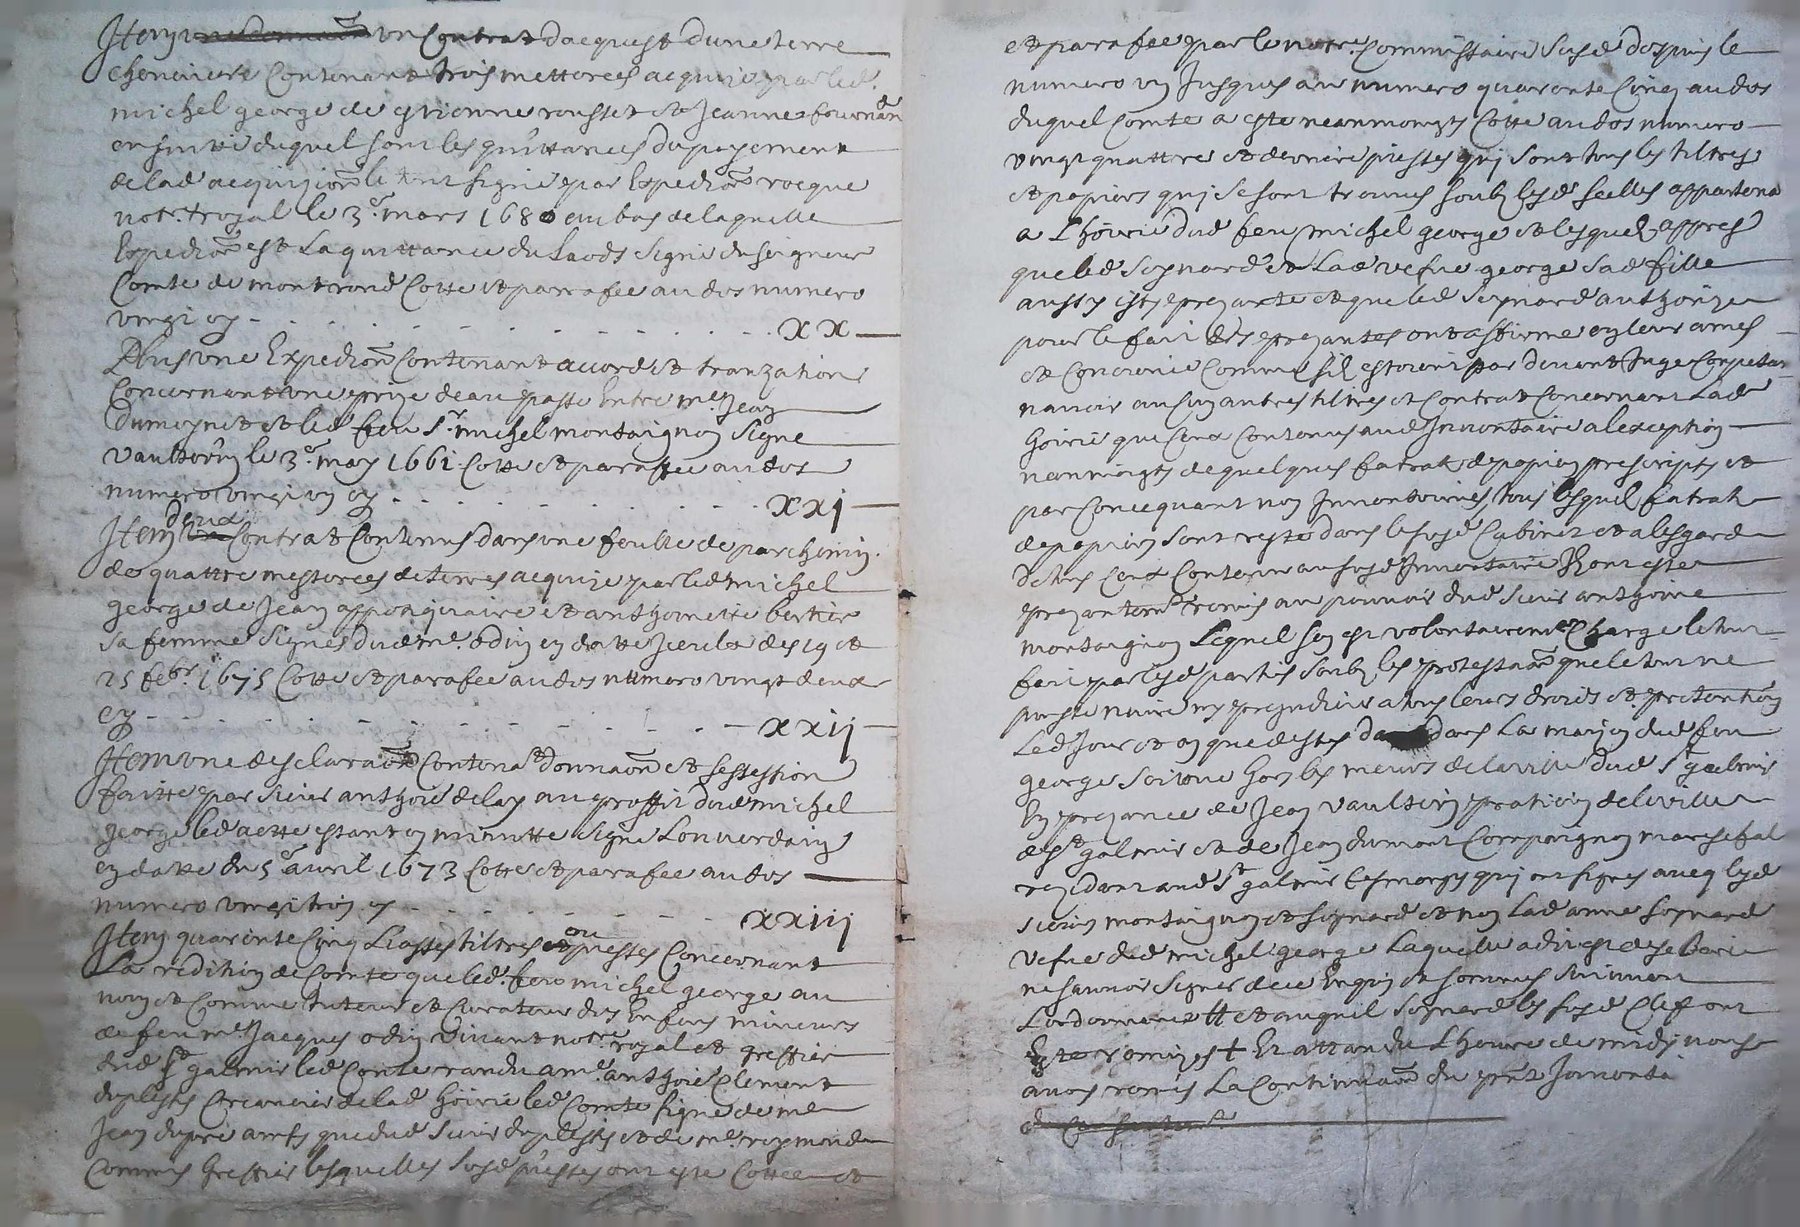 Item une donnaon un Contrat dacquest dune terre
cheneviere Contenant trois metterees acquize par led.
michel george de estienne rousset et Jeanne fournand
en suitte duquel sont les quittances du payement
de lad acquizion le tout signé par Expedion rocque
notre royal le 3e mars 1680 au bas de laquelle
Expedion est La quittance du Laods signé du seigneur
Comte de montrond Cotte et parrafee au dos numero
vingt cy - - - - - - - xx
Plus une Expedion Contenant accord et tranzation
Concernant une prize deau passé Entre me Jean
Dumoynet et led feu Sr michel montaignon Signé
Vaultorin le 3e may 1661 Cotte et paraffee au dos
numero vingt un cy - - - - - - xxj
Item deux Contrat Contenus dans une feulle de parchemin
de quattre mesterees de terres acquize par led michel
george de Jean appotiquaire et anthoinette bertier
sa femme Signés dud me odin en datte Iceulx des 19 et
25 febr. 1675 Cotte et parafee au dos numero vingt deux
cy - - - - - - - xxij
Item une desclaraon Contenat donnaon et sessestion
faitte par sieur anthoe delay au proffit dud michel
george led acte estant en minutte Signe Lonverdain
en datte du 5e avril 1673 Cotte et parafee au dos
numero vingt troy cy - - - - - - xxiij
Item quarente Cinq Liasses tiltres ou piesses Concernant
La redition de Comte que led. feu michel george au
nom et Comme tuteur et Curateur des Enfans mineurs
de feu me Jacques odin vivant notre royal et greffier
dud St galmier led Comte randu a me anthoie Clement
duplessis Creancier de lad hoirie led Comte signé de me
Jean dupré amfs que dud Sieur duplessis et de me reymond
Commis greffier lesquelles susd piesses ont este Cottée et
et parafee par le notre Commissaire Susd despuis le
numero un Jusques au numero quarente Cinq au dos
duquel Comte a este neanmoings Cotte au dos numero
vingt quattre et derniere piesses quj sont tous les tiltres
et papiers quj se sont trouves soubz lesd seelles appartena
a Lhoirie dud feu michel george et lesquelz appres
que led Soynard et Lad vefve george sad fille
aussy isy prezante et que led Soynard authorize
pour le fait des prezantes ont affirmé en leur ames
et Concience Comme silz estoient par devant Juge Competan
navoir aucun autres tiltres et Contrat Concernant Lad
hoirie que Ceux Contenus aud Inventaire a lexception
neanmoings de quelques fatrat de papiers prescripts et
par Concequant non Inventoriés, tous lesquelz fatrat
de papiers sont reste dans le susd Cabinet et a lesgard
de tous Ceux Contenu au susd Inventaire Ilz ont este
prezantemt remis au pouvoir dud sieur anthoine
montaignon Lequel sen est volontairemt Charge le tout
fait par lesd parties soubz les protestaons que le tout ne
puisse nuire ny prejudicier a tous leurs droits et pretentions
Led Jour et an que dessus dans La maison dud feu
george scitue hors les meurs de la ville dud St galmier
En prezance de Jean Vaultorin praticien de la ville
de St galmier et de Jean dumont Compaignon mareschal
rezidant aud St galmier tesmoings quj ont signes avecq lesd
sieurs montaignon et soynard et non Lad anne soynard
vefve dud michel george Laquelle a dit et desclaré
ne scavoir signer de ce Enquis et sommes suivant
Lordonnance # et auquel Soynard les susd Clef ont
Este remizes + Et attandu Lheure de midy nous
avons remis La Continuaon du prnt Inventa